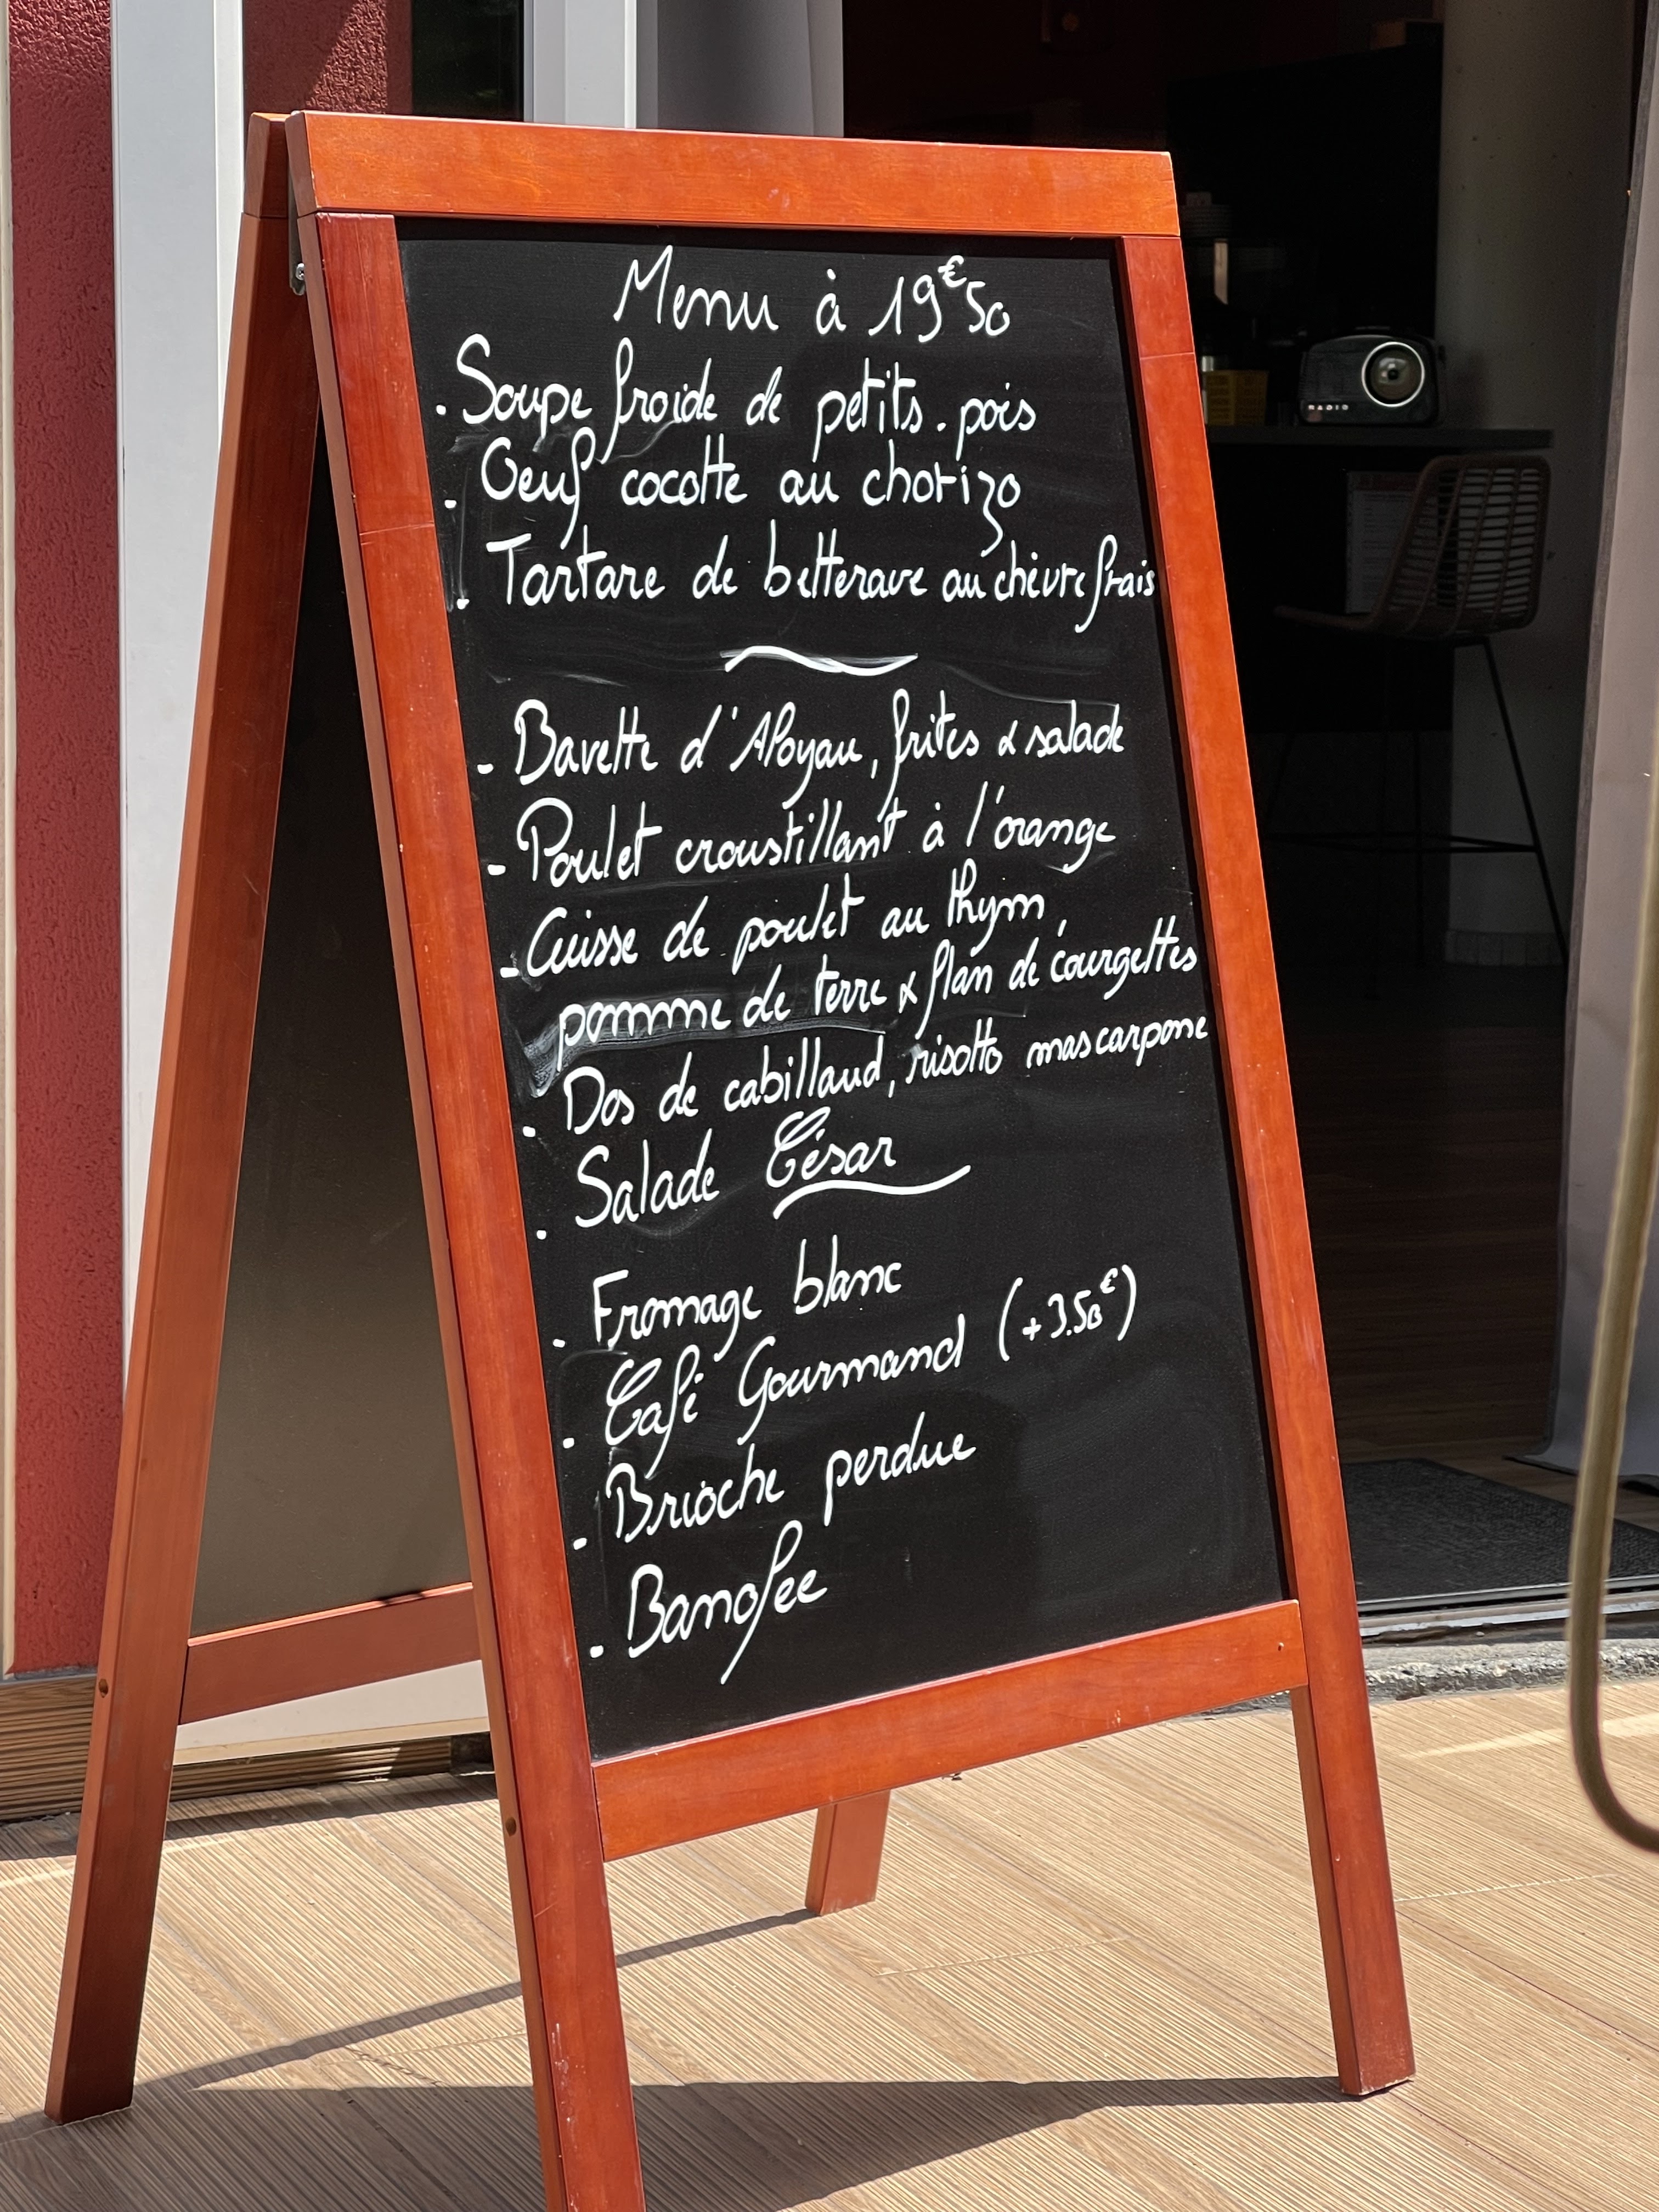 Menu à 19€50
. Soupe froide de petits.pois
. Oeuf cocotte au chorizo
. Tartare de betterave au chèvre frais
- Bavette d'Aloyau, frites & salade
- Poulet croustillant à l'orange
- Cuisse de poulet au thym,
pomme de terre & flan de courgettes
. Dos de cabillaud, risotto mascarpone
. Salade César
. Fromage blanc
. Café Gourmand (+3.50€)
. Brioche perdue
. Banofee
RADIO